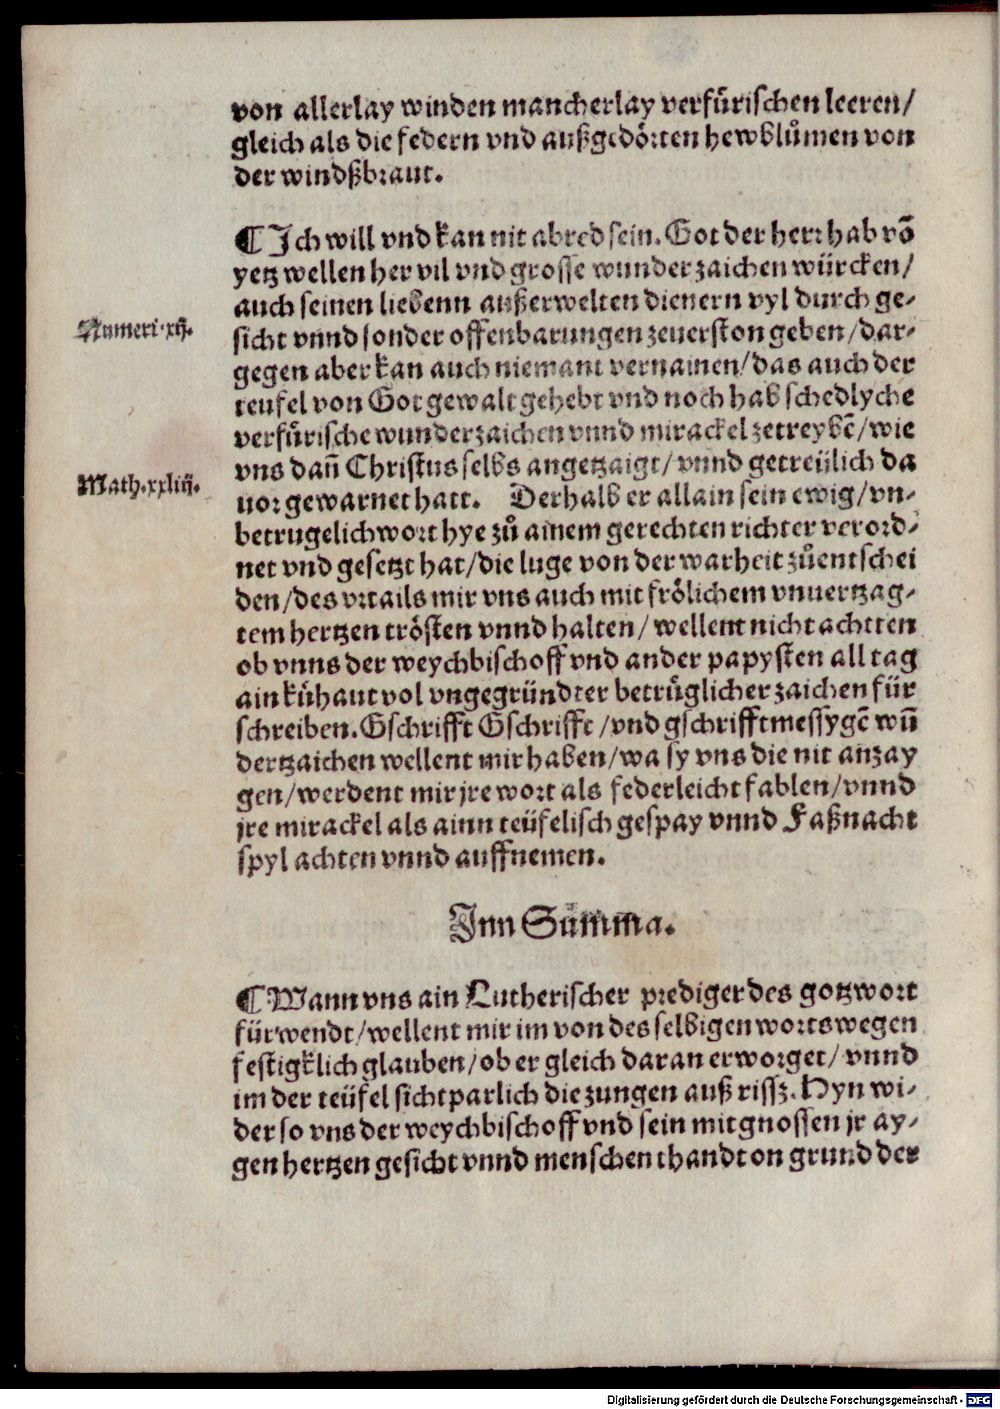 von allerlay winden mancherlay verfürischen leeren/
gleich als die federn vnd außgedörten hewblůmen von
der windßbraut.
¶ Ich will vnd kan nit abred sein. Got der herr hab võ
yetz wellen her vil vnd grosse wunderzaichen würcken/
auch seinen liebenn außerwelten dienern vyl durch ge-
Numeri·xij.
sicht vnnd sonder offenbarungen zeuerston geben/dar-
gegen aber kan auch niemant vernainen/das auch der
teufel von Got gewalt gehebt vnd noch hab schedlyche
verfürische wunderzaichen vnnd mirackel zetreybẽ/wie
vns dañ Christus selbs angetzaigt/vnnd getreijlich da
Math.xxiiij.
uor gewarnet hatt. Derhalb er allain sein ewig/vn-
betrugelich wort hye zů ainem gerechten richter verord-
net vnd gesetzt hat/die luge von der warheit zůentschei
den/des vrtails mir vns auch mit frölichem vnuertzag-
tem hertzen trösten vnnd halten/wellent nicht achtten
ob vnns der weychbischoff vnd ander papysten all tag
ain kühaut vol vngegründter betrüglicher zaichen für
schreiben. Gschrifft Gschrifft/vnd gschrifftmessygẽ wũ
dertzaichen wellent mir haben/wa sy vns die nit anzay
gen/werdent mir jre wort als federleicht fablen/vnnd
jre mirackel als ainn teüfelisch gespay vnnd Faßnacht
spyl achten vnnd auffnemen.
Inn Sůmma.
¶ Wann vns ain Lutherischer prediger des gotzwort
fürwendt/wellent mir im von des selbigen worts wegen
festigklich glauben/ob er gleich daran erworget/vnnd
im der teüfel sichtparlich die zungen auß rissz. Hyn wi-
der so vns der weychbischoff vnd sein mitgnossen jr ay-
gen hertzen gesicht vnnd menschen thandt on grund der
Digitalisierung gefördert durch die Deutsche Forschungsgemeinschaft - DFG